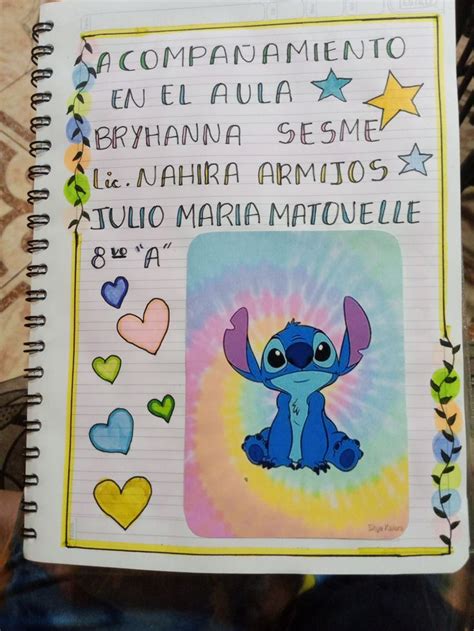 ACOMPAÑAMIENTO
EN EL AULA
BRYHANNA SESME
Lic. NAHIRA ARMIJOS
JULIO MARIA MATOVELLE
8vo "A"